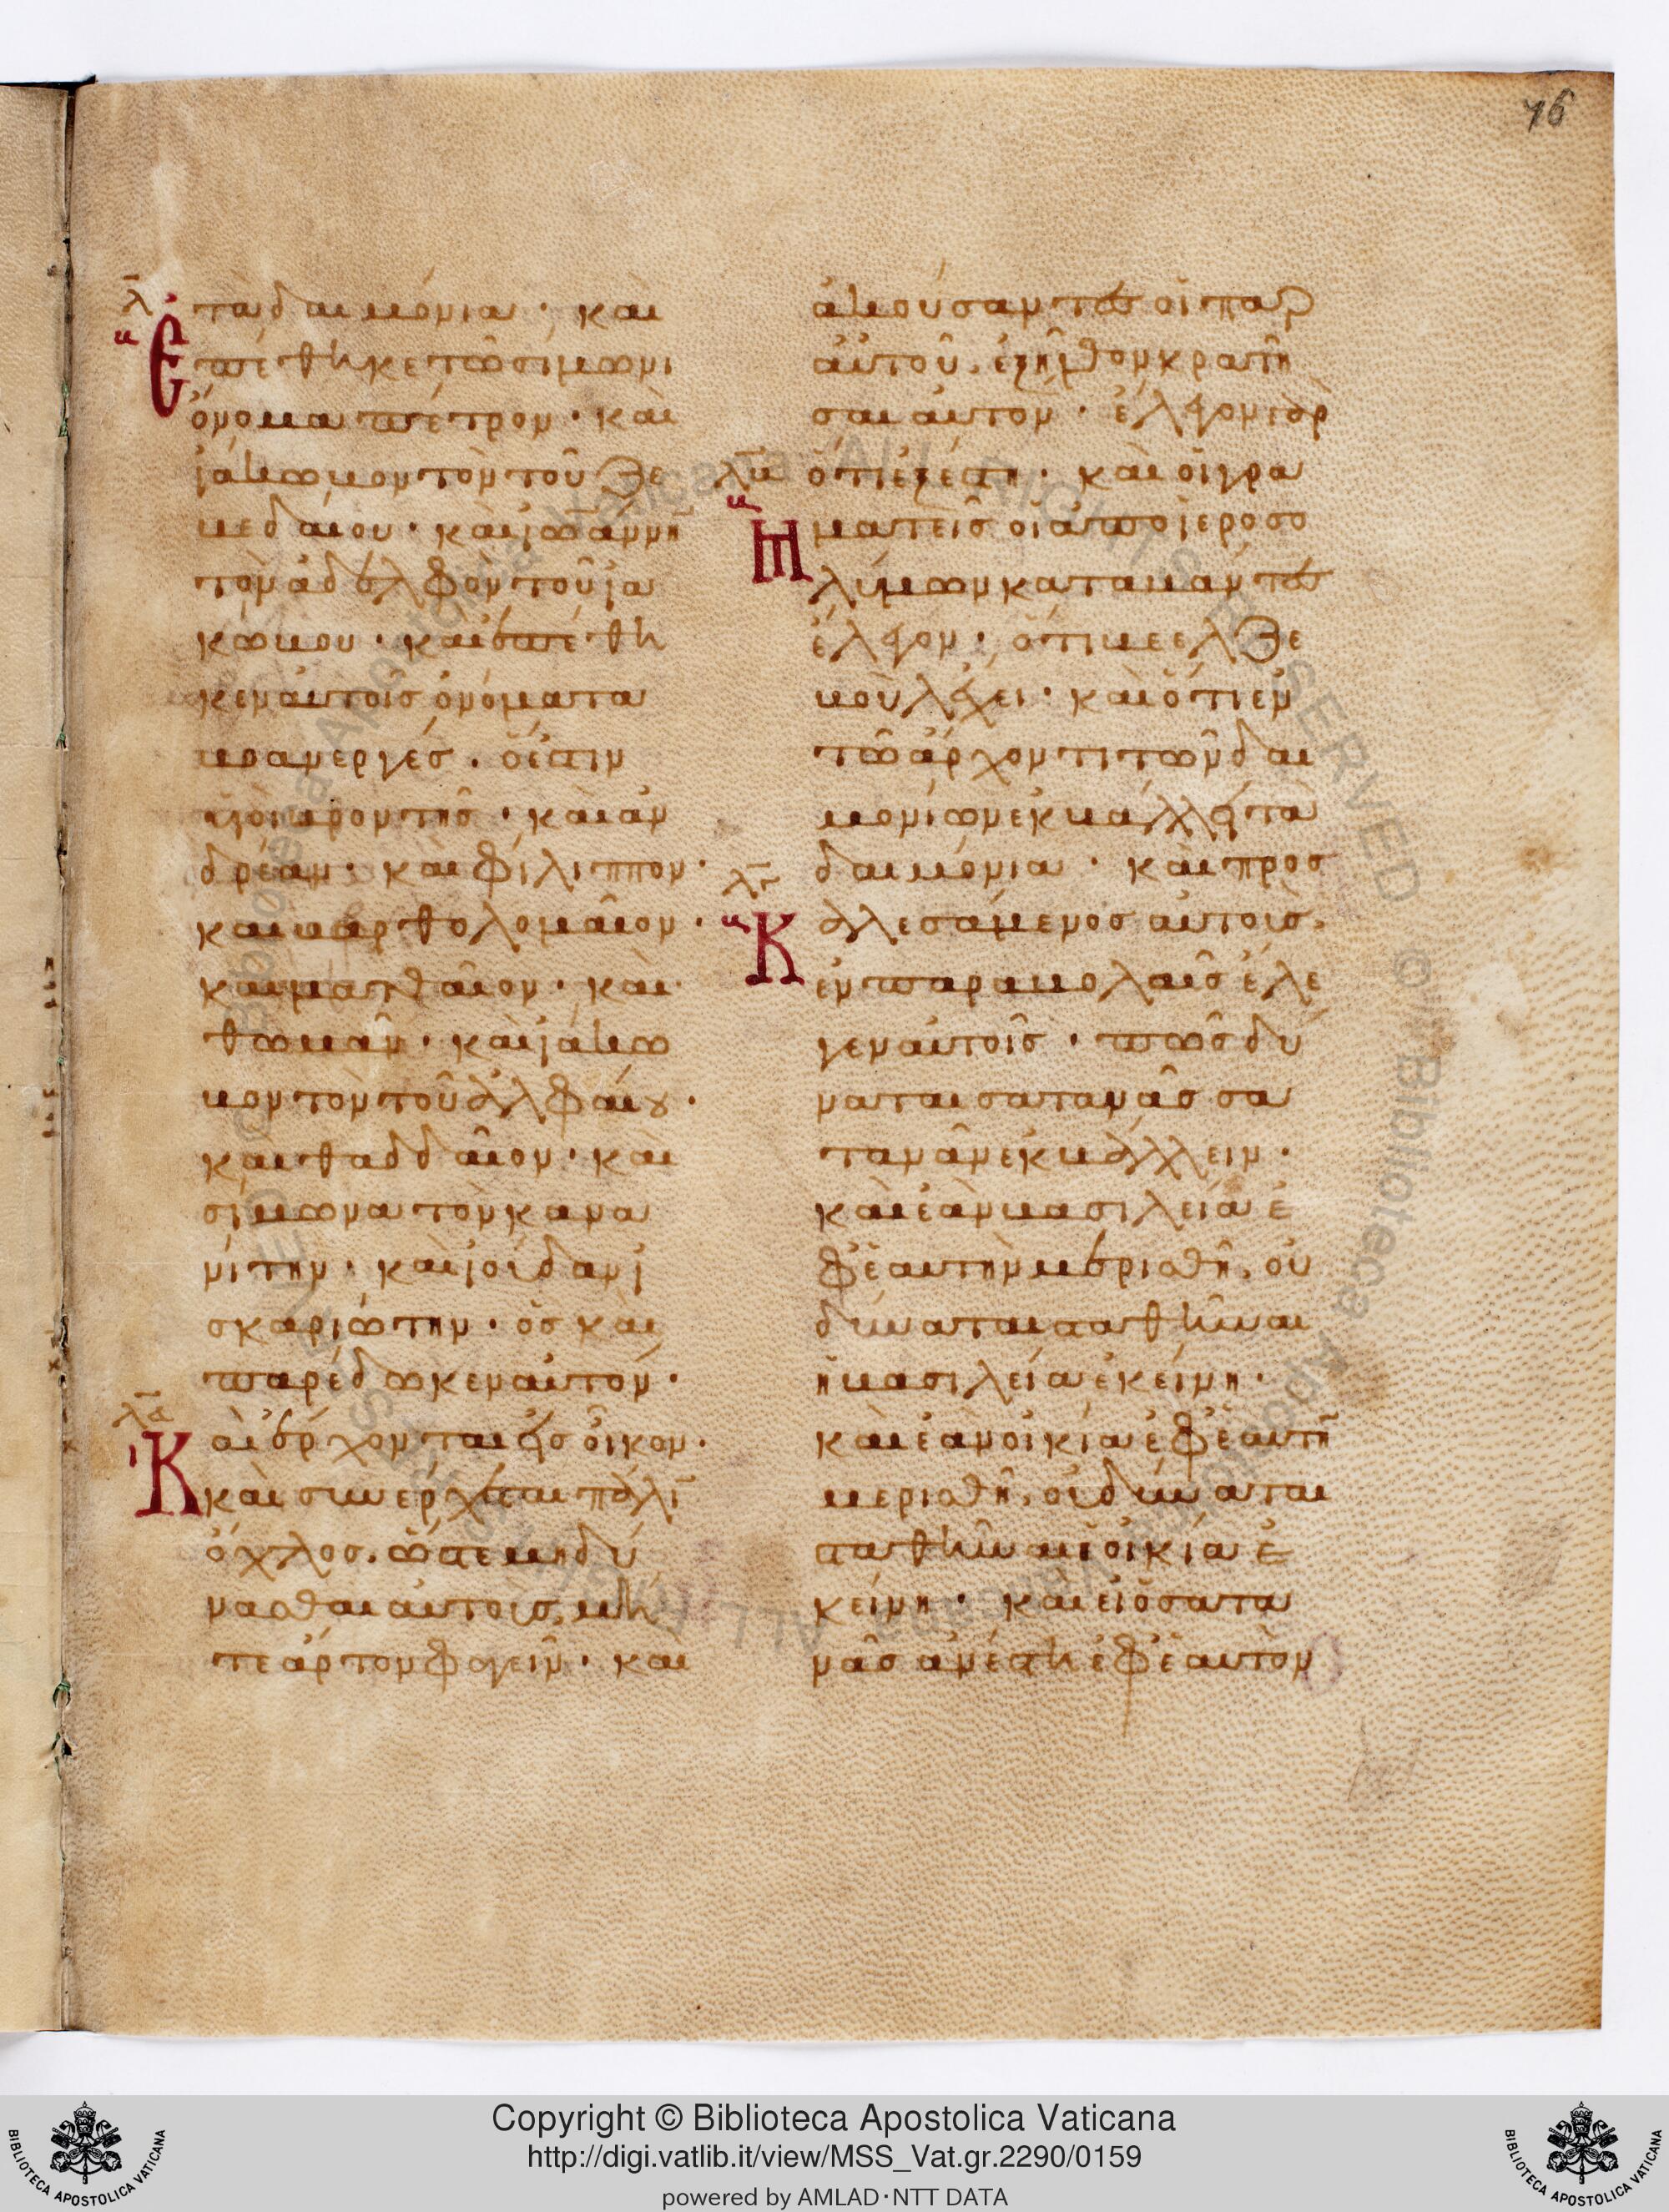 76
λ̄
τὰ δαιμόνια · καὶ
Ἐπέθηκε τῶ σίμωνι
ὄνομα πέτρον · καὶ
ϊάκωβον τὸν τοῦ ζε
βεδαίου · καὶ ϊωάννη̄
τὸν ἀδελφὸν τοῦ ϊα
κώβου · καὶ ἐπέθη
κεν αὐτοῖς ὀνόματα
βοανεργές · ὅ ἐστιν
υἱοὶ βροντῆς · καὶ ἀν
δρέαν · καὶ φίλιππον ·
καὶ βαρθολομαῖον ·
καὶ ματθαῖον · καὶ
θωμᾶν · καὶ ϊάκω
βον τὸν τοῦ ἀλφαίου ·
καὶ θαδδαῖον · καὶ
σίμωνα τὸν κανα
νίτην · καὶ ϊούδαν ϊ
σκαριώτην · ὃς καὶ
παρέδωκεν αὐτόν ·
λ̄α
Καὶ ἔρχονται εἰς οἶκον ·
καὶ συνέρχεται πάλῑ
ὄχλος, ὥστε μὴ δύ
νασθαι αὐτοὺς, μή
τε ἄρτον φαγεῖν · καὶ
ἀκούσαντες οἱ παρ
αὐτοῦ, ἐξῆλθον κρατῆ
σαι αὐτόν · ἔλεγον γὰρ
λ̄β
ὅτι ἐξέστη · καὶ οἱ γρα
μματεῖς οἱ ἀπὸ ϊεροσο
λύμων καταβάντες
ἔλεγον · ὅτι βεελζε
βοὺλ ἔχει · καὶ ὅτι ἐν
τῶ ἄρχοντι τῶν δαι
μονίων ἐκβάλλει τὰ
λ̄γ
δαιμόνια · καὶ προσ
Καλεσάμενος αὐτοὺς,
ἐν παραβολαῖς ἔλε
γεν αὐτοῖς · πῶς δύ
ναται σατανᾶς σα
τανᾶν ἐκβάλλειν ·
καὶ ἐὰν βασιλεία ἐ
φ' ἑαυτὴν μερισθῆ, οὐ
δύναται σταθῆναι
ἡ βασιλεία ἐκείνη ·
καὶ ἐὰν οἰκία ἐφ' ἑαυτὴ̄
μερισθῆ, οὐ δύναται
σταθῆναι ἡ οἰκία ἐ
κείνη · καὶ εἰ ὁ σατα
νᾶς ἀνέστη ἐφ' ἑαυτὸν
Copyright © Biblioteca Apostolica Vaticana
http://digi.vatlib.it/view/MSS_Vat.gr.2290/0159
powered by AMLAD · NTT DATA
BIBLIOTECA APOSTOLICA VATICANA
BIBLIOTECA APOSTOLICA VATICANA